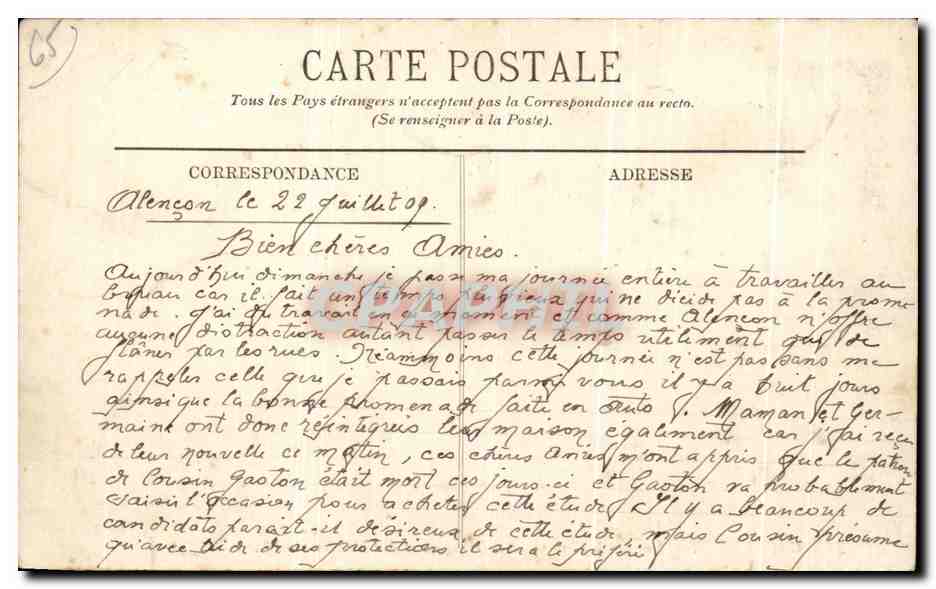 65
CARTE POSTALE
Tous les Pays étrangers n'acceptent pas la Correspondance au recto.
(Se renseigner à la Poste).
CORRESPONDANCE
ADRESSE
Alençon le 22 Juillet 09.
Bien chères Amies.
Aujourd'hui dimanche je passe ma journée entière à travailler au
bureau car il fait un temps pluvieux qui ne décide pas à la prome
nade. J'ai du travail en ce moment et comme Alençon n'offre
aucune distraction autant passer le temps utilement que de
flâner par les rues. Néammoins cette journée n'est pas sans me
rappeler celle que je passais parmi vous il y a huit jours
ainsi que la bonne promenade faite en auto. Maman et Ger-
maine ont donc réintégrées leur maison également car j'ai reçu
de leur nouvelle ce matin, ces chères Amies m'ont appris que le patron
de Cousin Gaston était mort ces jours-ci et Gaston va probablement
saisir l'occasion pour acheter cette étude. Il y a beaucoup de
candidats parait-il désireux de cette étude, mais Cousin présume
qu'avec aide de ses protections il sera le préféré